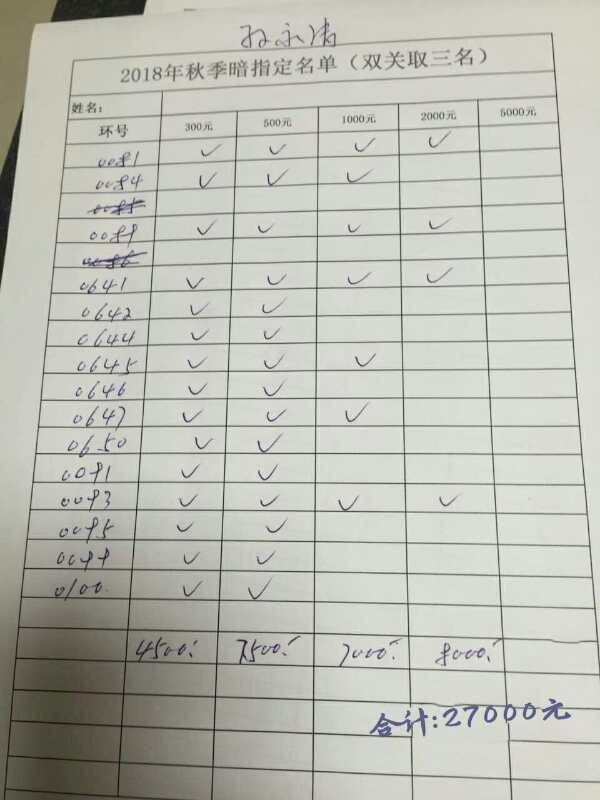 孙永清
2018年秋季暗指定名单（双关取三名）
姓名：
环号 300元 500元 1000元 2000元 5000元
0081 ✓ ✓ ✓ ✓
0084 ✓ ✓ ✓
0085
✓ ✓ ✓ ✓
0086
0641 ✓ ✓ ✓ ✓
0642 ✓ ✓
0644 ✓ ✓
0645 ✓ ✓ ✓
0646 ✓ ✓
0647 ✓ ✓ ✓
0650 ✓ ✓
0091 ✓ ✓
0093 ✓ ✓ ✓ ✓
0095 ✓ ✓
0099 ✓ ✓
0100 ✓ ✓
4500 7500 7000 8000
合计:27000元